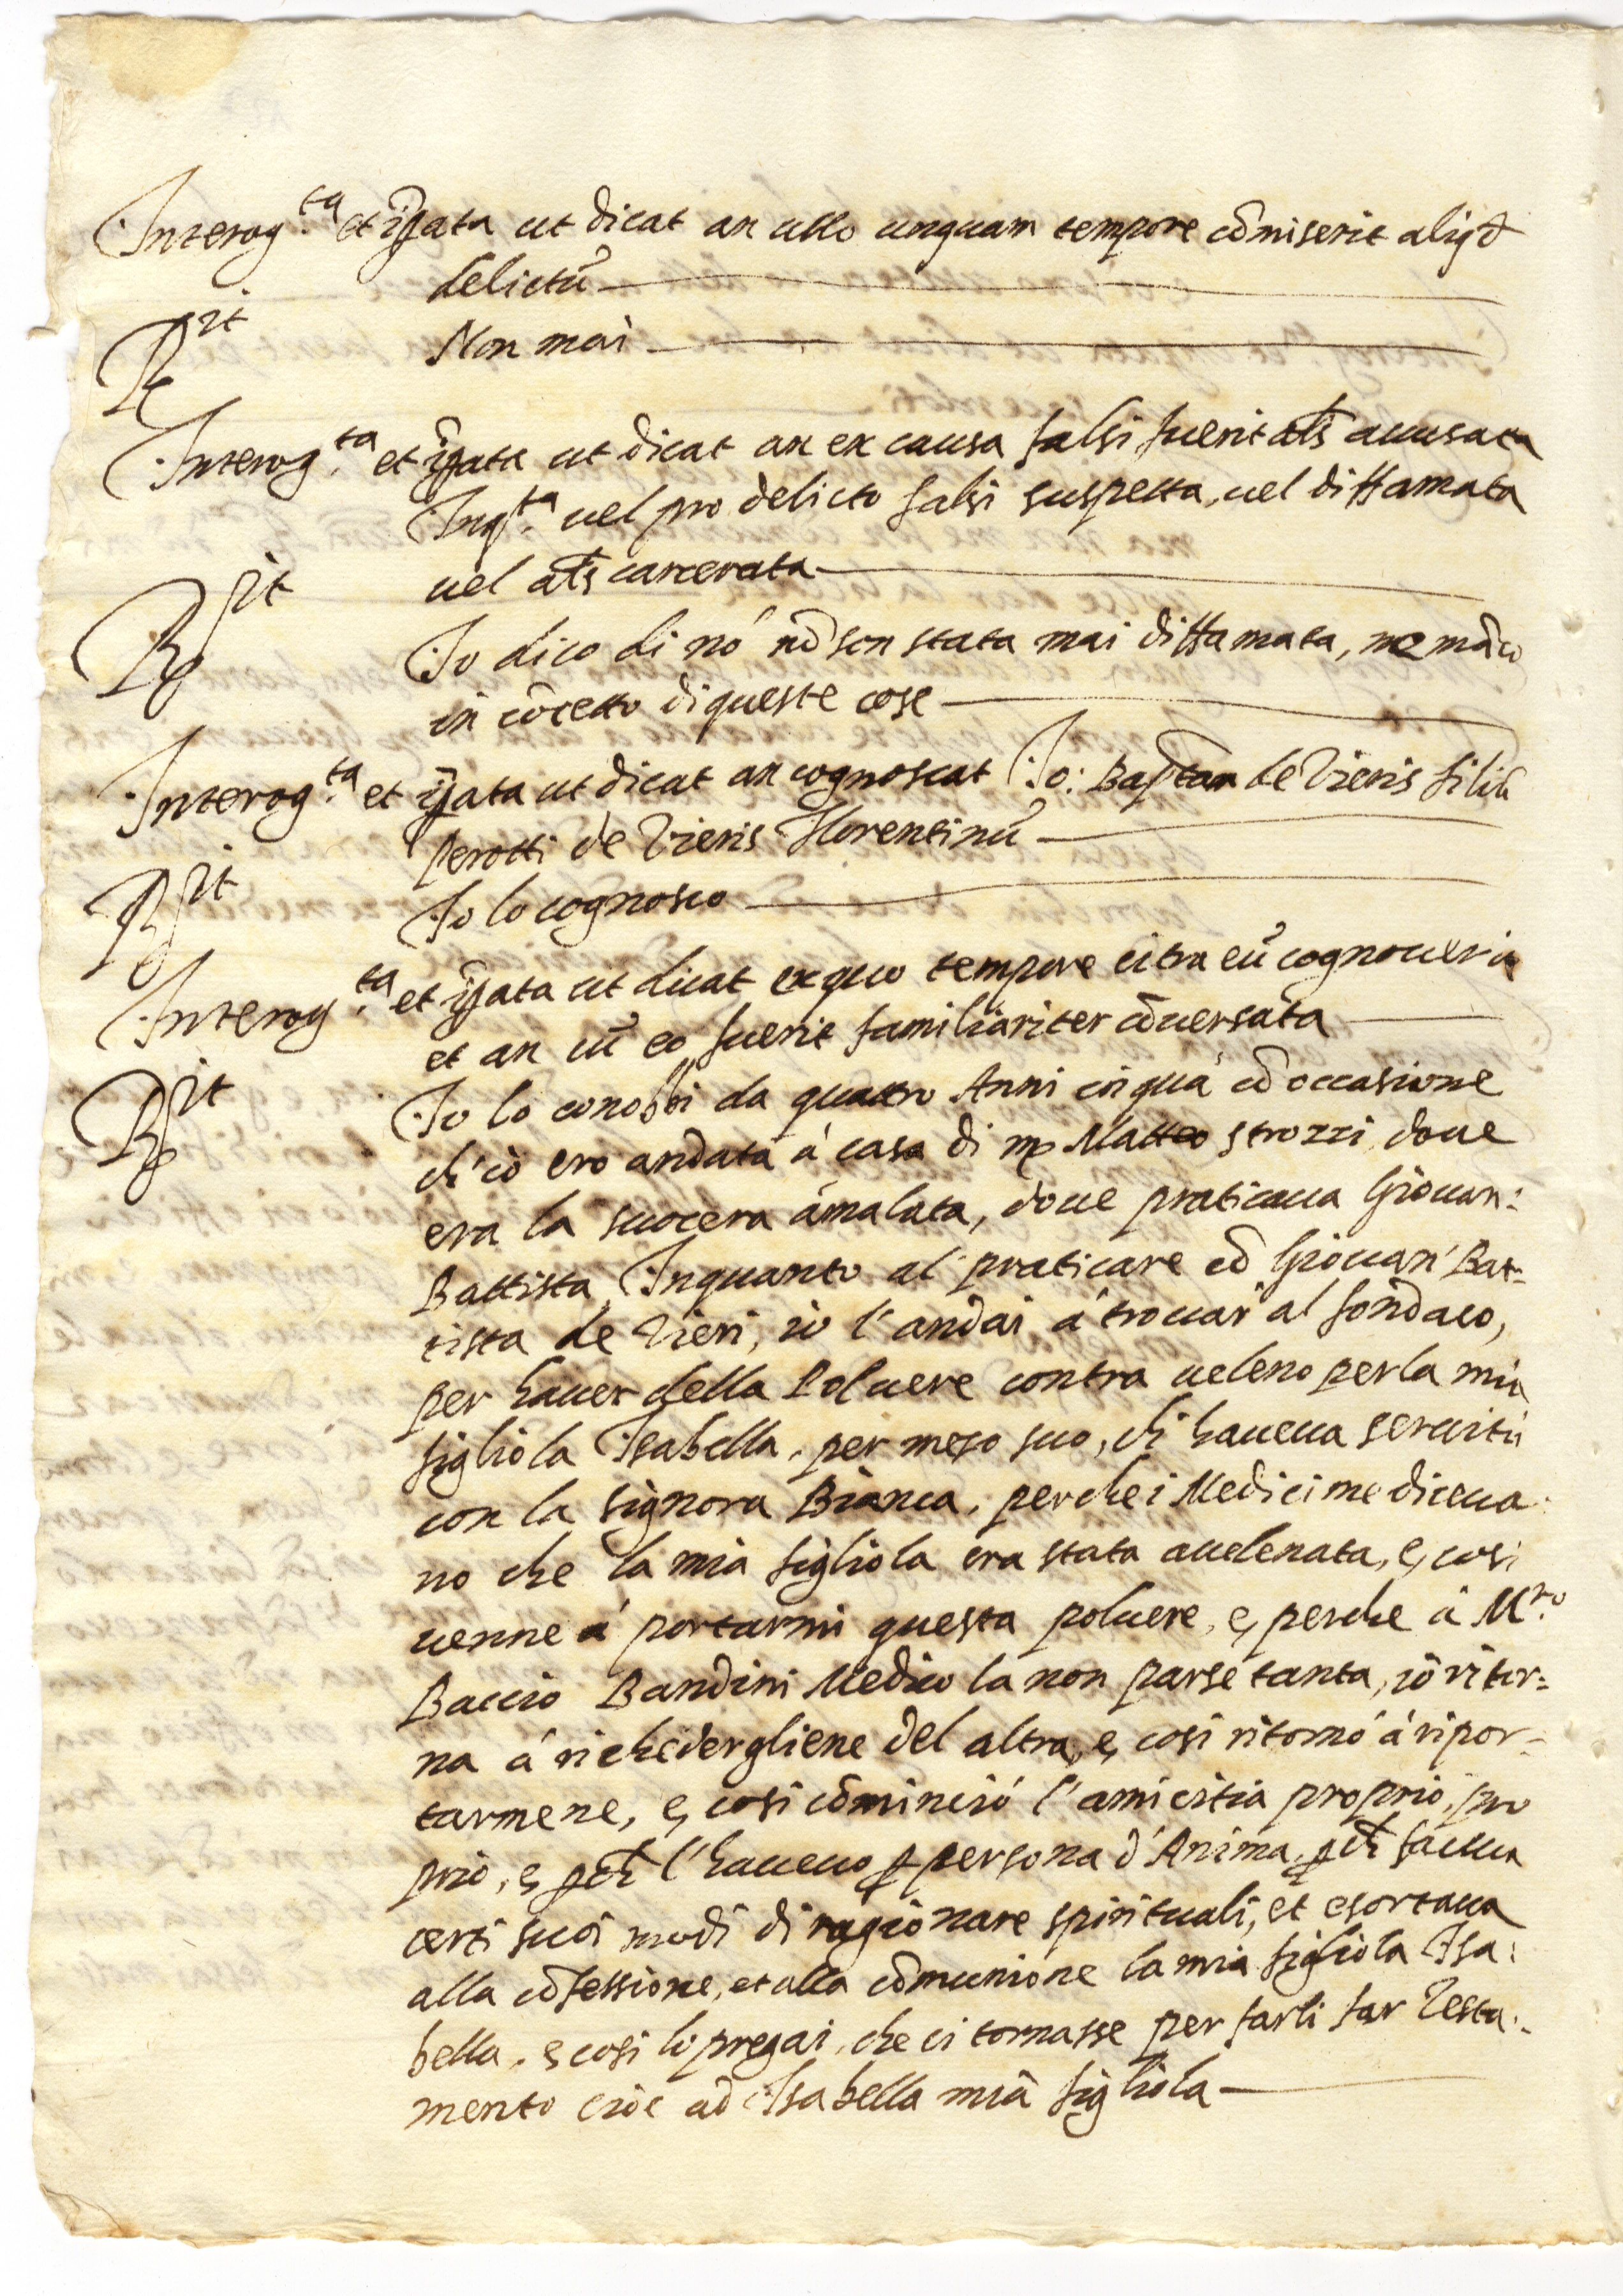 Interog.ta et ip̃ata ut dicat an ullo unquam tempore cõmiserit aliqd̃
delictũ
Rit Non mai
Interog.ta et ip̃ata ut dicat an ex causa falsi fuerit als̃ accusata
Inq.ta uel pro delicto falsi suspecta, uel diffamata
uel als̃ carcerata
Rit Io dico di nó nõ son stata mai diffamata, ne mãco
in cõcetto di queste cose
Interog.ta et ip̃ata ut dicat an cognoscat Io: Bap̃tam de Vieris filiũ
Perotti de Vieris Florentinũ
Rit Io lo cognosco
Interog.ta et ip̃ata ut dicat ex quo tempore citra eũ cognouerit
et an cũ eo fuerit familiariter cõuersata
Rit Io lo conobbi da quattro Anni in quà cõ occasione
ch'iò ero andata à casa di mp Matteo strozzi doue
era la suocera ãmalata, doue praticaua Giouan:
Battista, Inquanto al praticare cõ Giouan' Bat-
tista de Vieri, io l'andai à trouar al fondaco,
per hauer della Poluere contra ueleno per la mia
figliola Isabella, per mezo suo, ch̃ haueua seruitù
con la signora Bianca, perche i Medici me diceua:
no che la mia figliola era stata auelenata, e, cosi
uenne à portarmi questa poluere, e, perche à M.ro
Baccio Bandini Medico la non parse tanta, iò ritor=
na à richiedergliene del altra, e, cosi ritornó à ripor-
tarmene, e, cosi cõminció l'amicitia proprio, pro
prio, e, pch̃ l'haueuo p persona d'Anima, pch̃ faceua
certi suoi modi di ragionare spirituali, et esortaua
alla cõfessione, et alla cõmunione la mia figliola Isa:
bella, e cosi lo pregai, che ci tornasse per farli far Testa:
mento cioè ad Isabella mia figliola